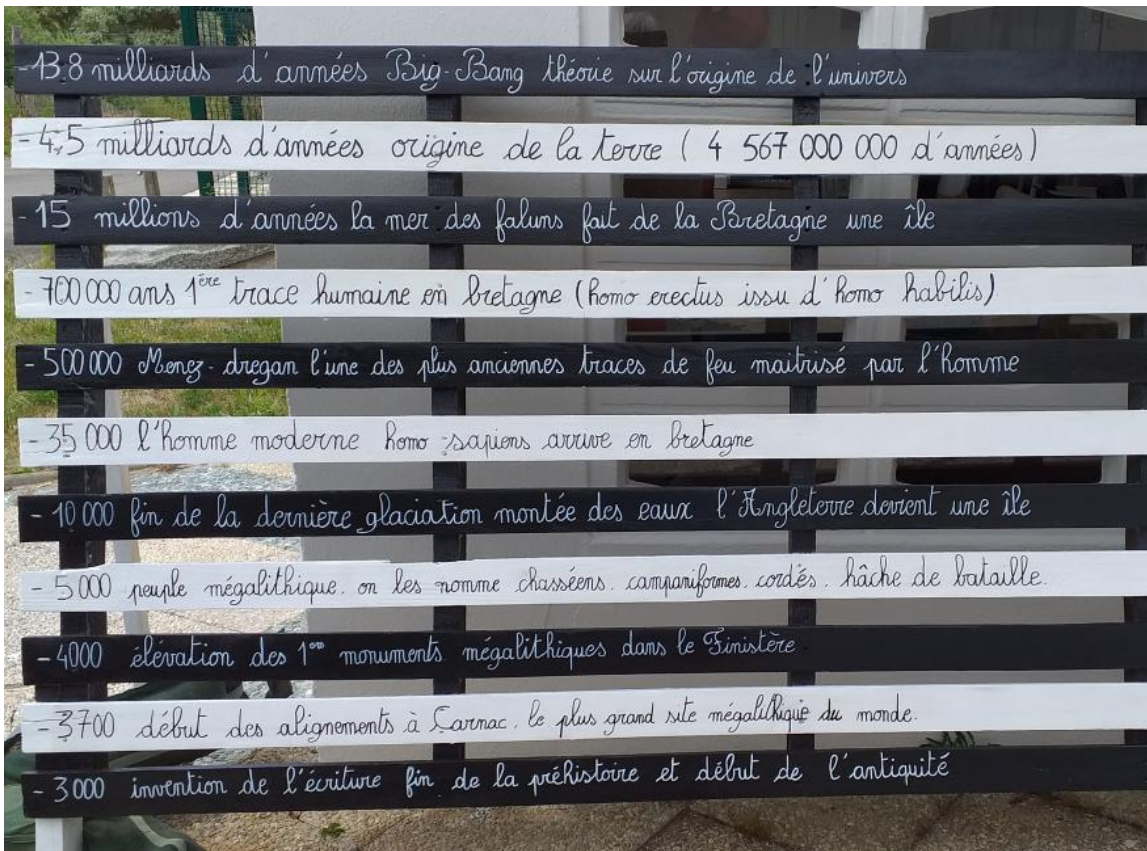 -13.8 milliards d'années Big-Bang théorie sur l'origine de l'univers
-4,5 milliards d'années origine de la terre (4 567 000 000 d'années)
-15 millions d'années la mer des faluns fait de la Bretagne une île
-700 000 ans 1ère trace humaine en bretagne (homo erectus issu d'homo habilis)
-500 000 Menez-dregan l'une des plus anciennes traces de feu maitrisé par l'homme
-35 000 l'homme moderne homo-sapiens arrive en bretagne
-10 000 fin de la dernière glaciation montée des eaux l'Angleterre devient une île
-5 000 peuple mégalithique. on les nomme chasséens. campaniformes. cordés. hâche de bataille.
-4000 élévation des 1ers monuments mégalithiques dans le Finistère
-3700 début des alignements à Carnac. le plus grand site mégalithique du monde.
-3000 invention de l'écriture fin de la préhistoire et début de l'antiquité